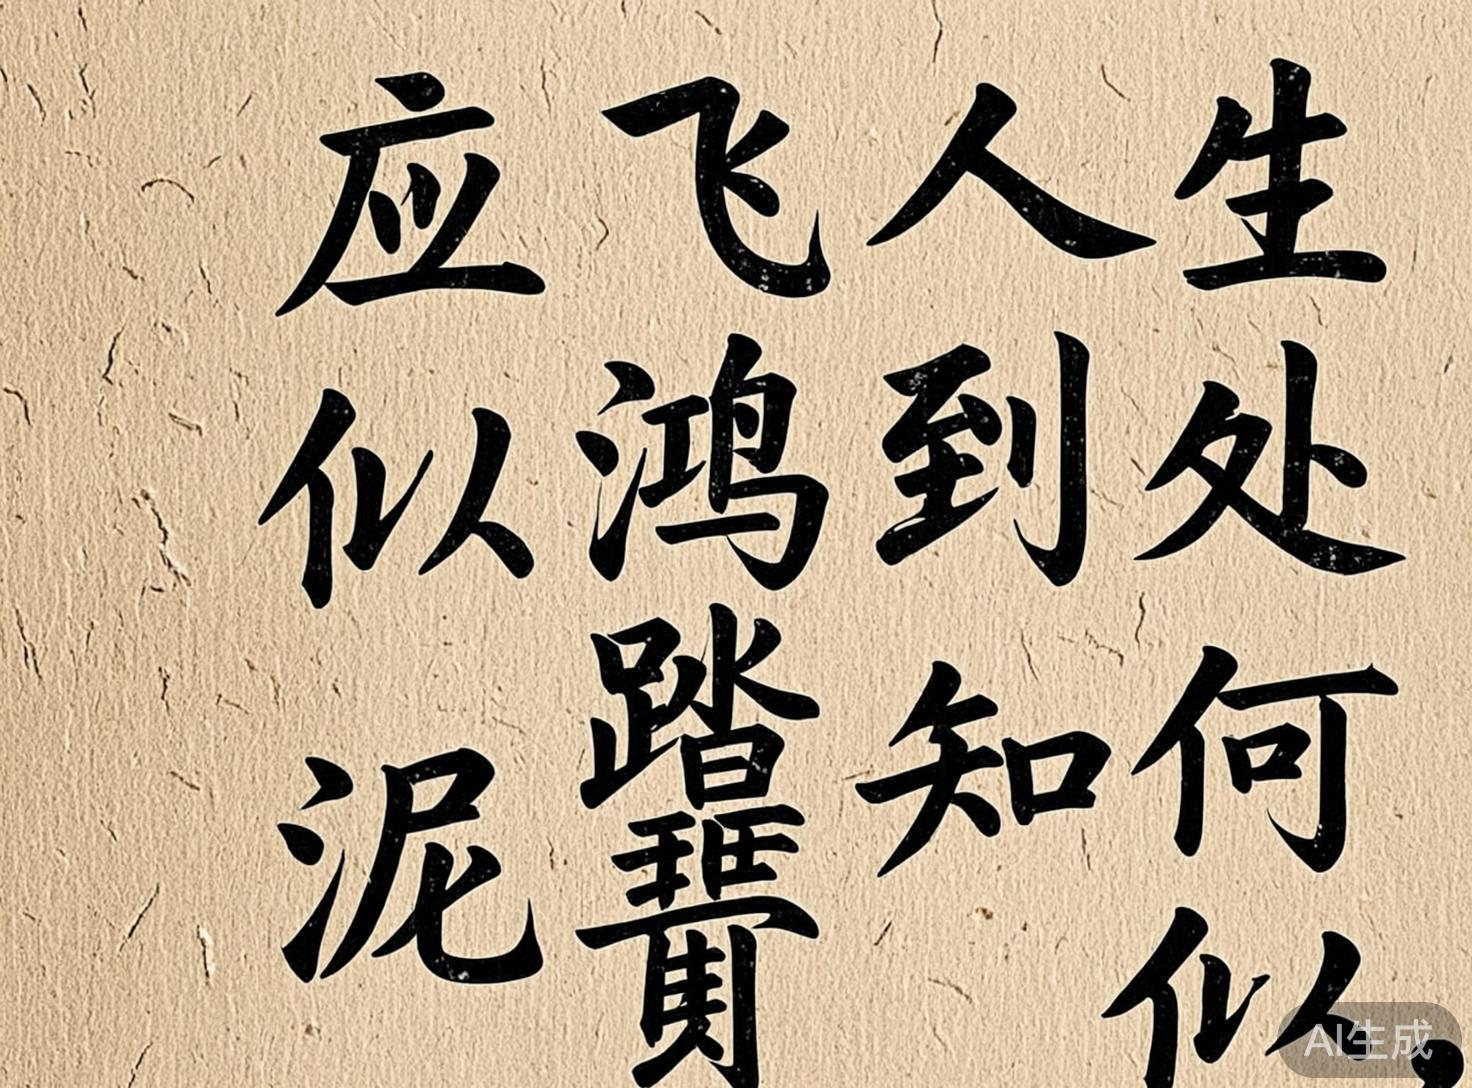 生处何似
人到知
飞鸿踏
应似泥
AI生成